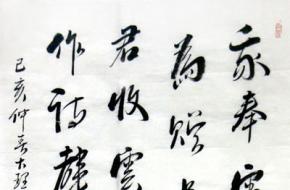 我奉雲
為贈
君收雲
作詩聲
己亥仲春大理